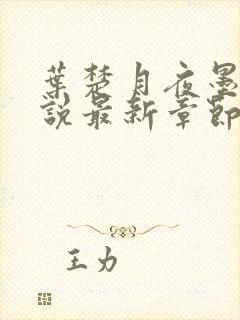 葉楚月夜墨
說最新章節
王力